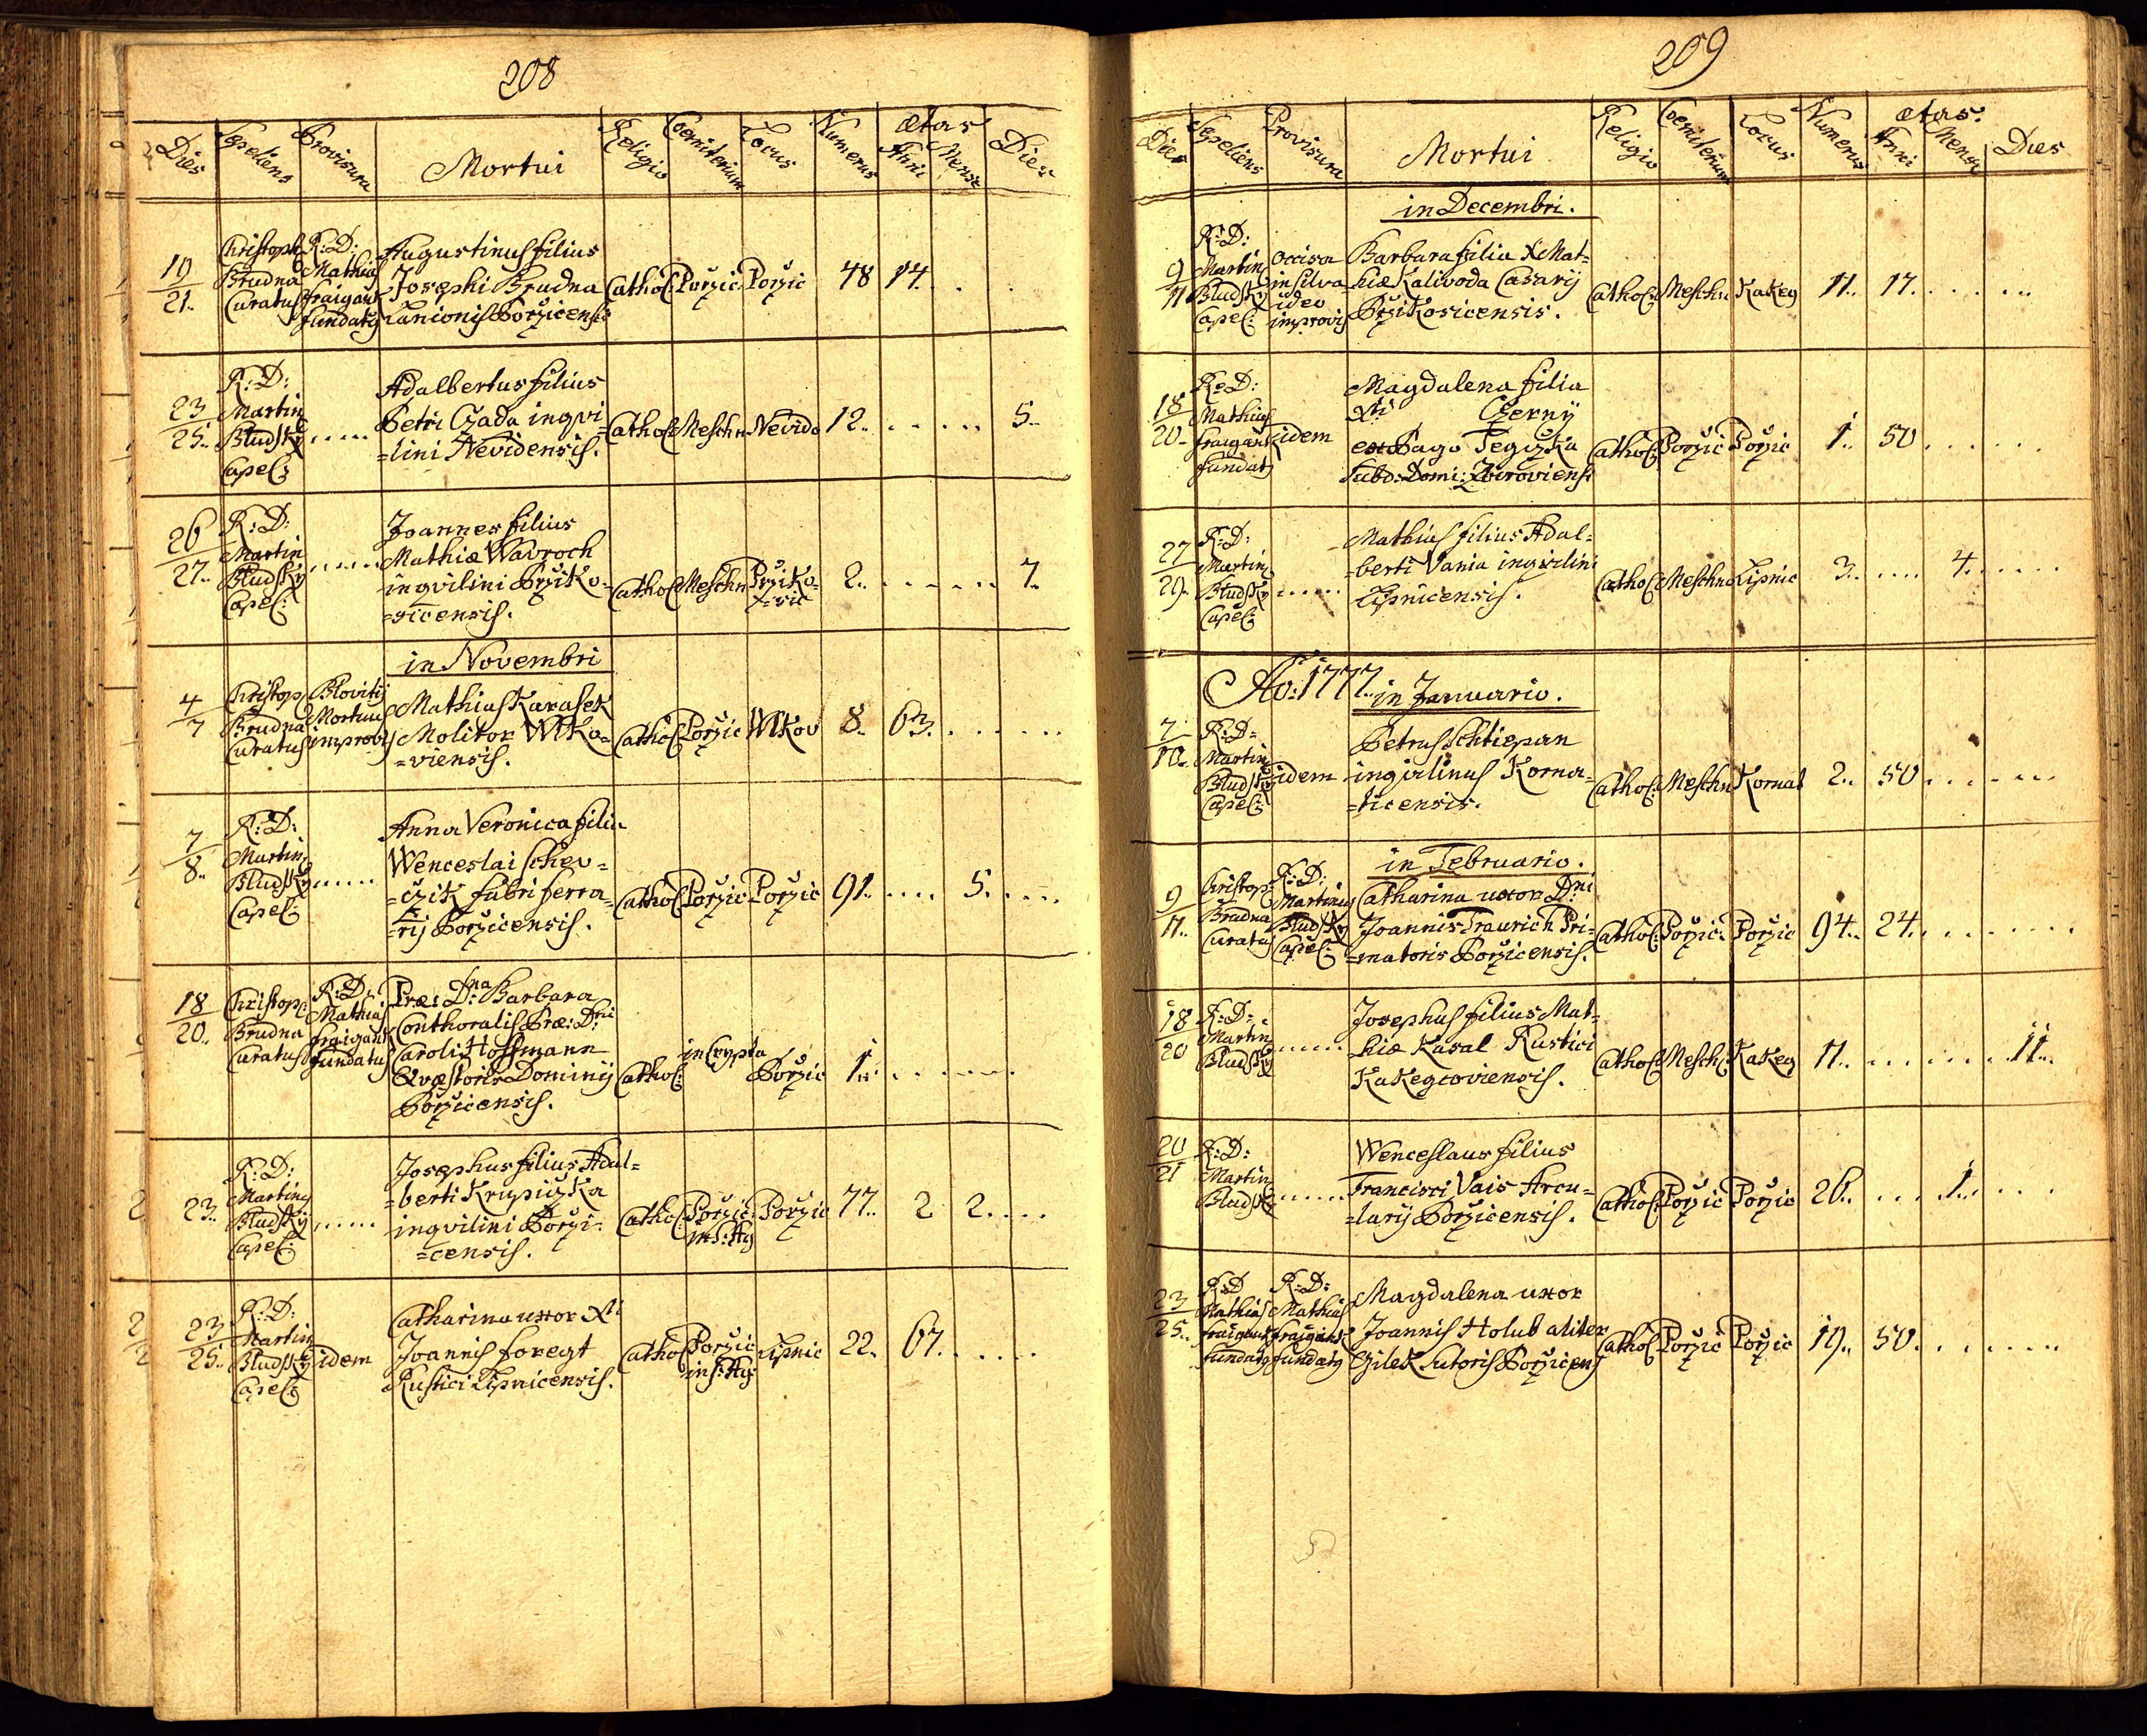 208
Dies Sepeliens Provisura Mortui Religio Coemiterium Locus Numerus ætas Anni Mense Dies
19/21.. Christoph Brudna Curatus
R: D: Mathias fraigant fundatq
Augustinus filius
Josephi Brudna
Lanionis Porzicensis
Cathol: Porzic: Porzic 48 14. . .
23/25.. R: D: Martin Bludsky Capel: .....
Adalbertus filius
Petri Czada inqvi
=lini Nevidensis.
Cathol Meschn Nevido 12.. . . . . 5..
26/27.. R: D: Martin Bludsky Capel: .....
Joannes filius
Mathiæ Wavroch
inqvilini Prziko=
=sicensis.
Cathol Meschn Prziko=sic 2.. . . . . . 7.
in Novembri
4/7 Christop Brudna Curatus
Blovitij Mortuus improvis
Mathias Karasek
Molitor Wlko=
=viensis.
Cathol Porzic Wlkov 8.. 63. . . . . .
7/8.. R: D: Martin Bludsky Capel: .....
Anna Veronica filia
Wenceslai Schev=
=czik fabri ferra=
=rij Porzicensis.
Cathol Porzic Porzic 91.. .... 5. . . . .
18/20.. Christop: Brudna Curatus
R: D: Mathias fraigant fundatus
Præ: D:na Barbara
Conthoralis Præ: D:ni
Caroli Hoffmann
Qvæstoris Dominij
Porzicensis.
Cathol: in Crypta Porzic 1.. . . . . .
23.. R: D: Martinq Bludsky Capel: .....
Josephus filius Adal=
=berti Krupiczka
inqvilini Porzi=
=censis.
Cathol: Porzic: in S: Ag Porzic 77.. 2 2. . . .
23/25.. R: D: Martin Bludsky Capel: idem
Catharina uxor Xti
Joannis foregt
Rustici Lipnicensis.
Cathol Porzic in S: Ag Lipnic 22.. 67. . . . .
209
Dies Sepeliens Provisura Mortui Religio Coemiterium Locus Numerus ætas. Anni Mense Dies
in Decembri.
9/11 R: D: Martin Bludsky Capel:
occisa in silva ideo improvis
Barbara filia X Mat=
=hiæ Kalivoda Casarij
Przikosicensis.
Cathol: Meschn Kakeg 11.. 17. . . . .
18/20.. R: D: Mathias fraigant fundatq idem
Magdalena filia
Xti Czerny
ex Pago Tegczka
Subd: Domi: Zbiroviensi
Cathol: Porzic Porzic 1.. 50 . . . . .
27/29. R: D: Martin Bludsky Capel: .....
Mathias filius Adal=
=berti Vania inqvilini
Lipnicensis.
Cathol Meschn Lipnic 3.. .... 4. . . . .
Ao: 1777. in Januario.
7/10.. R: D: Martin Bludsky Capel: idem
Petrus Schtiepan
inqvilinus Korna=
=ticensis.
Cathol: Meschn Kornat 2.. 50 . . . . .
in Februario.
9/11.. Christop: Brudna Curatq
R: D: Martinus Bludsky Capel:
Catharina uxor D:ni
Joannis Traurich Pri=
=matoris Porzicensis.
Cathol: Porzic: Porzic 94.. 24. . . . .
18/20 R: D: Martin Bludsky .....
Josephus filius Mat=
=hiæ Kasal Rustici
Kakegcoviensis.
Cathol Mesch: Kakeg 11.. . . . . . 11..
20/21 R: D: Martin Bludsky .....
Wenceslaus filius
Francisci Vais Arcu=
=larij Porzicensis.
Cathol: Porzic Porzic 26.. ... 1.. . . .
23/25.. R: D Mathias fraigant fundatq
R: D: Mathias fraigant fundatq
Magdalena uxor
Joannis Holub aliter
Czilek Sutoris Porzicens
Cathol Porzic Porzic 19.. 50. . . . . .